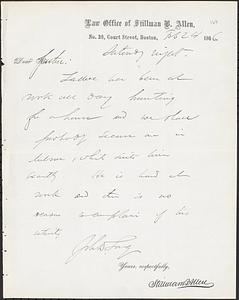 Law Office of Stillman B. Allen,
No. 39, Court Street, Boston, Feb 24 1866
Saturday night.
Dear
Father has been at
work all day hunting
for a house and we
probably secure one in
which suits him
exactly. He is hard at
work and there is no
reason complain of his
Yours, respectfully,
Stillman B. Allen